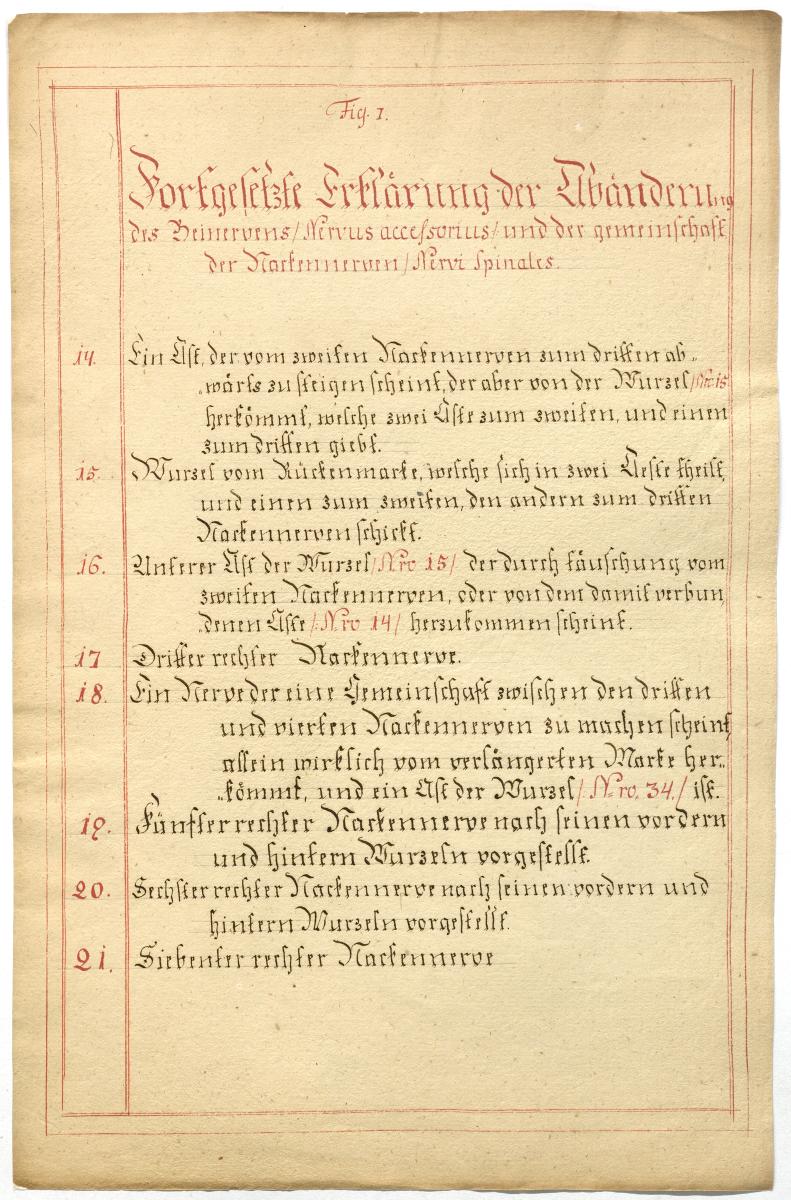 Fig. 1.
Fortgesetzte Erklärung der Abänderung
des Beinervens /Nervus accessorius/ und der gemeinschaft
der Nackennerven /Nervi Spinales.
14. Ein Ast, der vom zweiten Nackennerven zum dritten ab„
„wärts zu steigen scheint, der aber von der Wurzel /Nro 15
herkömmt, welche zwei Äste zum zweiten, und einen
zum dritten giebt.
15. Wurzel vom Rückenmarke, welche sich in zwei Aeste theilt,
und einen zum zweiten, den andern zum dritten
Nackennerven schickt.
16. Unterer Ast der Wurzel /Nro 15/ der durch täuschung vom
zweiten Nackennerven, oder von dem damit verbun„
„denen Äste /:Nro 14/ herzukommen scheint.
17 Dritter rechter Nackennerve.
18. Ein Nerve der eine Gemeinschaft zwischen den dritten
und vierten Nackennerven zu machen scheint,
allein wirklich vom verlängerten Marke her„
„kömmt, und ein Ast der Wurzel /: Nro. 34./ ist.
19. Fünfter rechter Nackennerve nach seinen vordern
und hintern Wurzeln vorgestellt.
20. Sechster rechter Nackennerve nach seinen vordern und
hintern Wurzeln vorgestellt.
21. Siebenter rechter Nackennerve